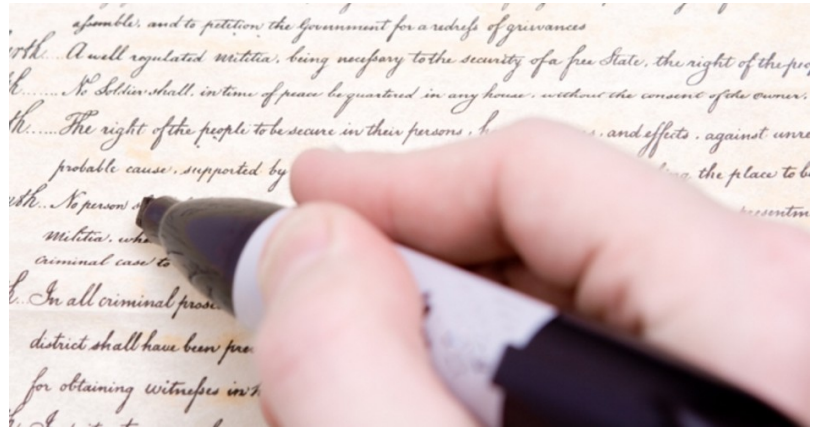 assemble, and to petition the Government for a redress of grievances
A well regulated militia, being necessary to the security of a free State, the right of the
No Soldier shall, in time of peace be quartered in any house, without the consent of the owner,
The right of the people to be secure in their persons, and effects, against
probable cause, supported by the place to
No person
militia, 
criminal case to
In all criminal
district shall have been
for obtaining witnesses in